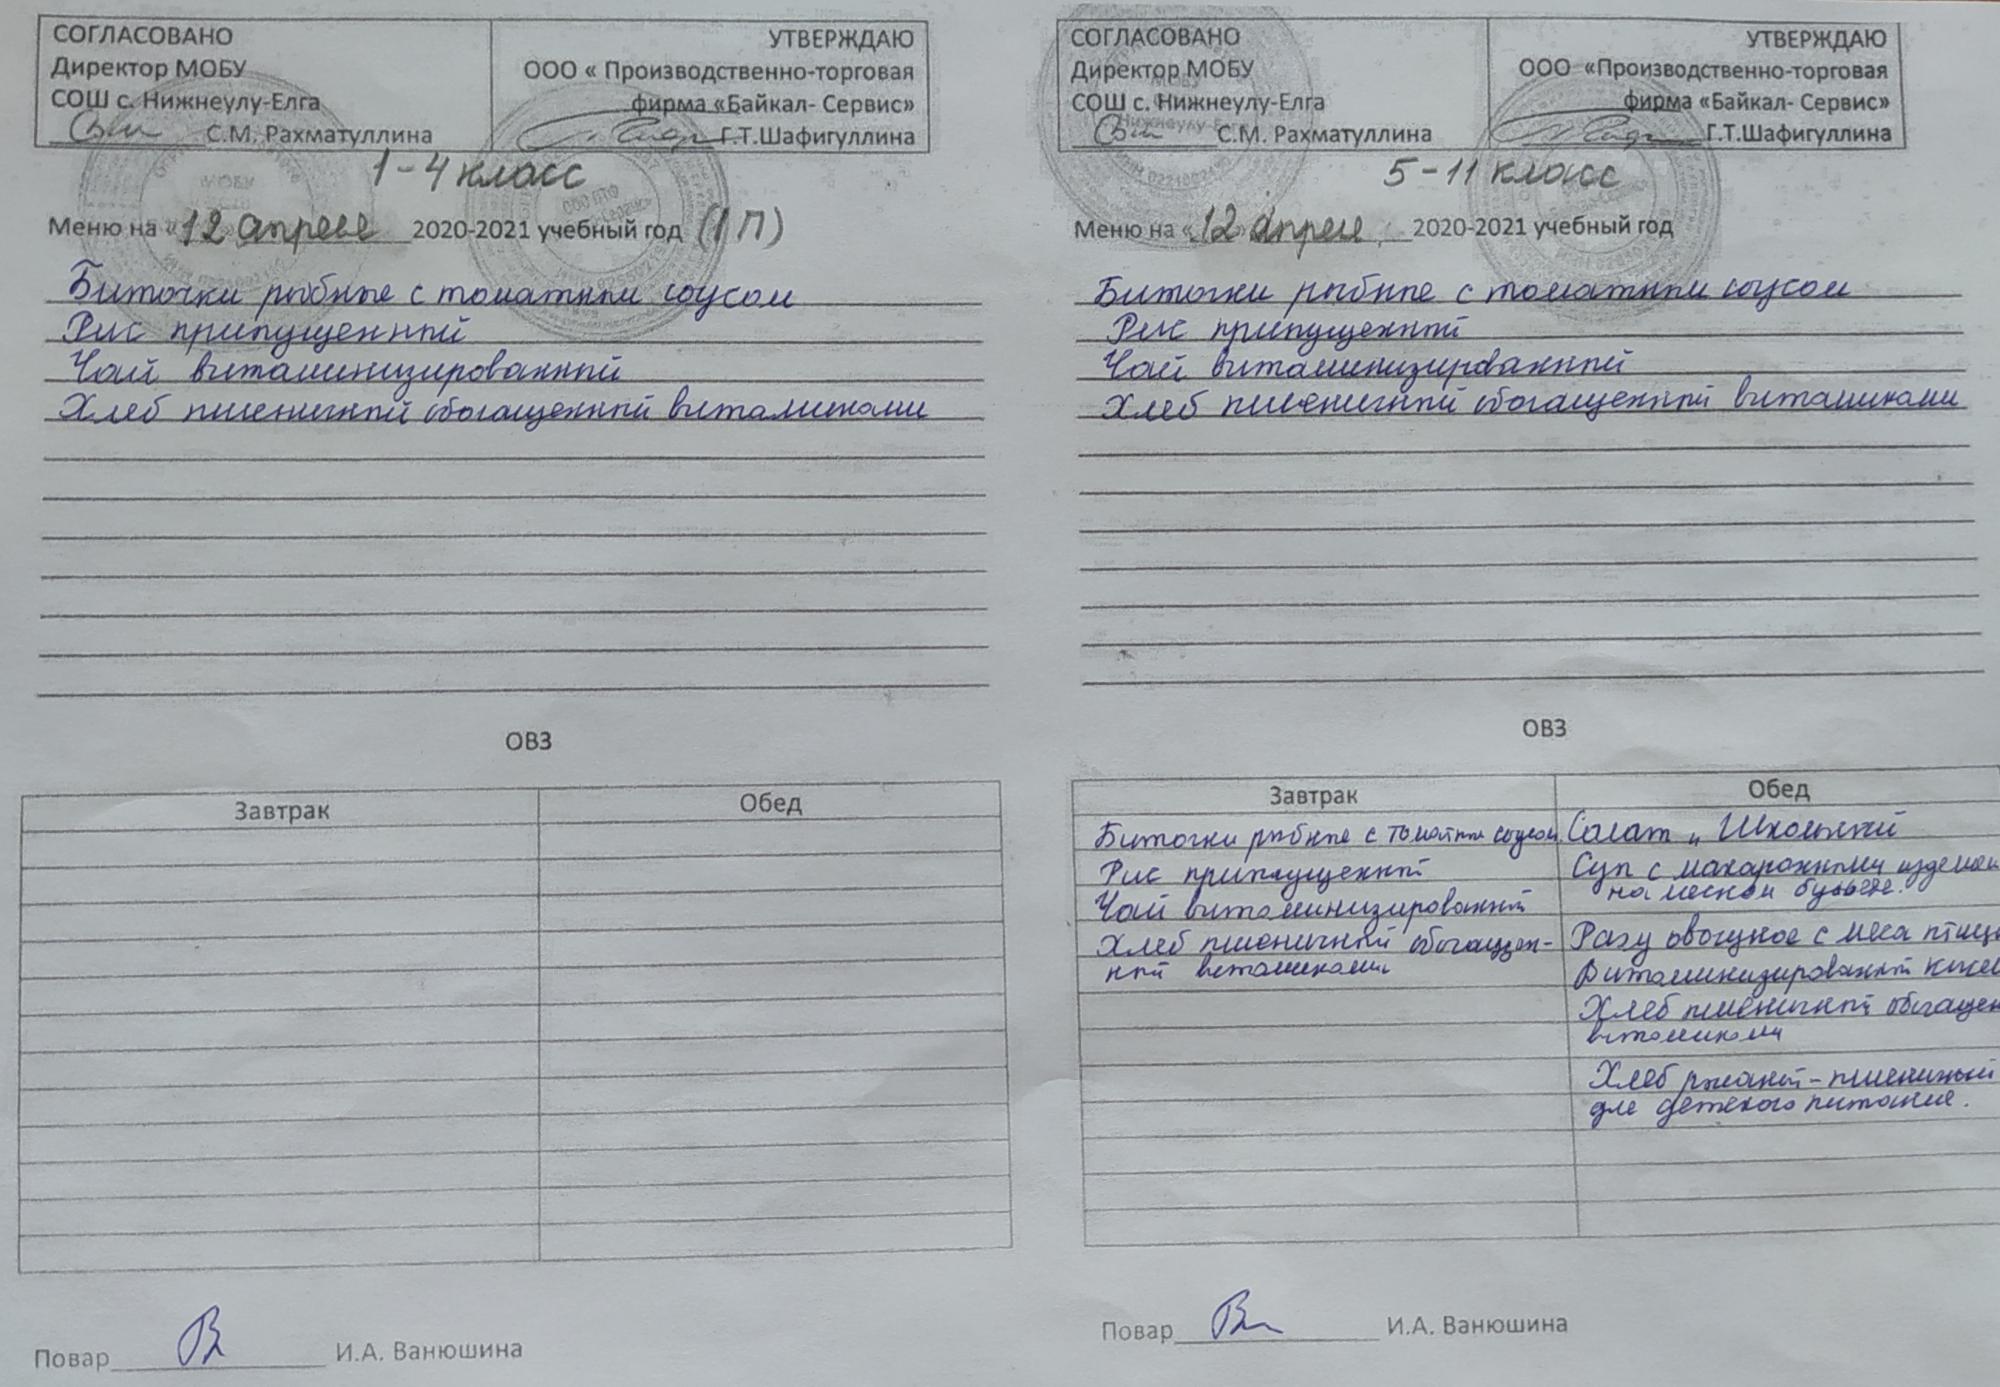 СОГЛАСОВАНО
Директор МОБУ
СОШ с. Нижнеулу-Елга
С.М. Рахматуллина
УТВЕРЖДАЮ
ООО « Производственно-торговая
фирма «Байкал- Сервис»
Г.Т.Шафигуллина
1-4 класс
Меню на «12 апреля 2020-2021 учебный год (1 П)
Биточки рыбные с томатным соусом
Рис припущенный
Чай витаминизированный
Хлеб пшеничный обогащенный витаминами
ОВЗ
Завтрак
Обед
Повар
И.А. Ванюшина
СОГЛАСОВАНО
Директор МОБУ
СОШ с. Нижнеулу-Елга
С.М. Рахматуллина
УТВЕРЖДАЮ
ООО «Производственно-торговая
фирма «Байкал- Сервис»
Г.Т.Шафигуллина
5-11 класс
Меню на «12 апреля 2020-2021 учебный год
Биточки рыбные с томатным соусом
Рис припущенный
Чай витаминизированный
Хлеб пшеничный обогащенный витаминами
ОВЗ
Завтрак
Биточки рыбные с томатным соусом
Рис припущенный
Чай витаминизированный
Хлеб пшеничный обогащен-
ный витаминами
Обед
Салат „ Школьный
Суп с макаронными изделиям
на мясном бульоне.
Рагу овощное с мяса птицы
Витаминизированный кисел
Хлеб пшеничный обогащен
витаминами
Хлеб ржаной-пшеничный
для детского питания.
Повар
И.А. Ванюшина